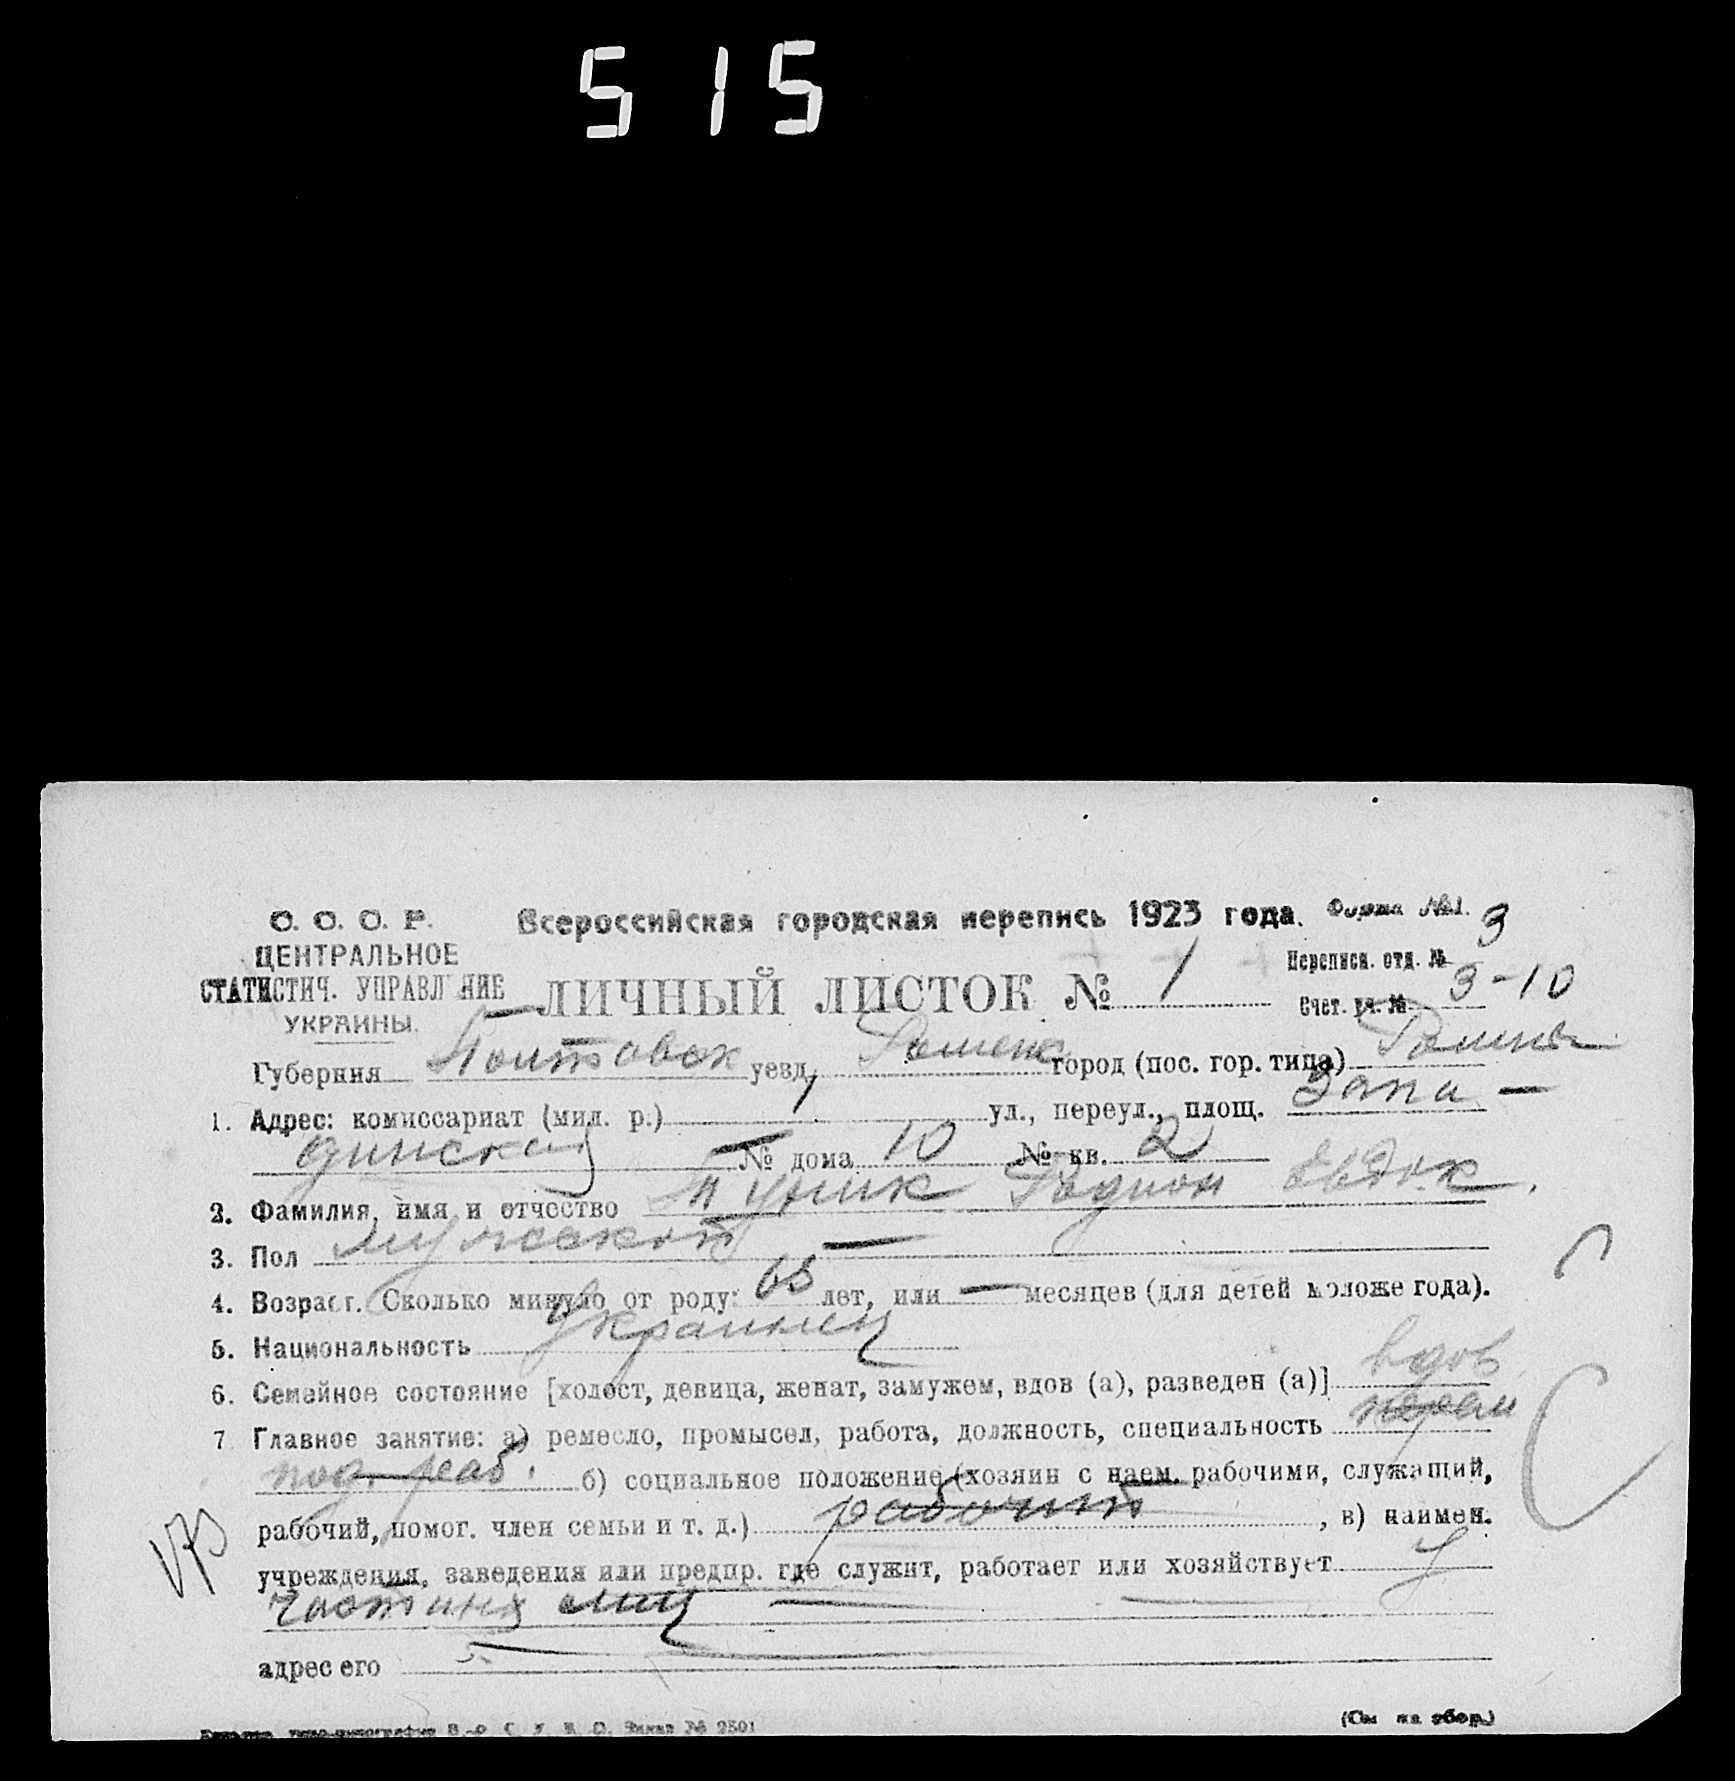 515
С. С. С. Р.
ЦЕНТРАЛЬНОЕ
СТАТИСТИЧ. УПРАВЛЕНИЕ
УКРАИНЫ.
Всероссийская городская перепись 1923 года.
Форма №1.
ЛИЧНЫЙ ЛИСТОК № 1
Переписн. отд. № 3
Счет. уч. № 3-10
Губерния Полтавск уезд Роменс город (пос. гор. типа) Ромны
1. Адрес: комиссариат (мил. р.) 1 ул., переул., площ. Запа-
динская № дома 10 № кв. 2
2. Фамилия, имя и отчество Родион Евдок.
3. Пол мужской
4. Возраст. Сколько минуло от роду: 65 лет, или — месяцев (для детей моложе года).
5. Национальность Украинец
6. Семейное состояние [холост, девица, женат, замужем, вдов (а), разведен (а)] вдов
7 Главное занятие: а) ремесло, промысел, работа, должность, специальность
под. раб. б) социальное положение (хозяин с наем. рабочими, служащий,
рабочий, помог. член семьи и т. д.) рабочий, в) наимен.
учреждения, заведения или предпр. где служит, работает или хозяйствует у
частных лиц
адрес его
Заказ № 2501
(См на обор.)